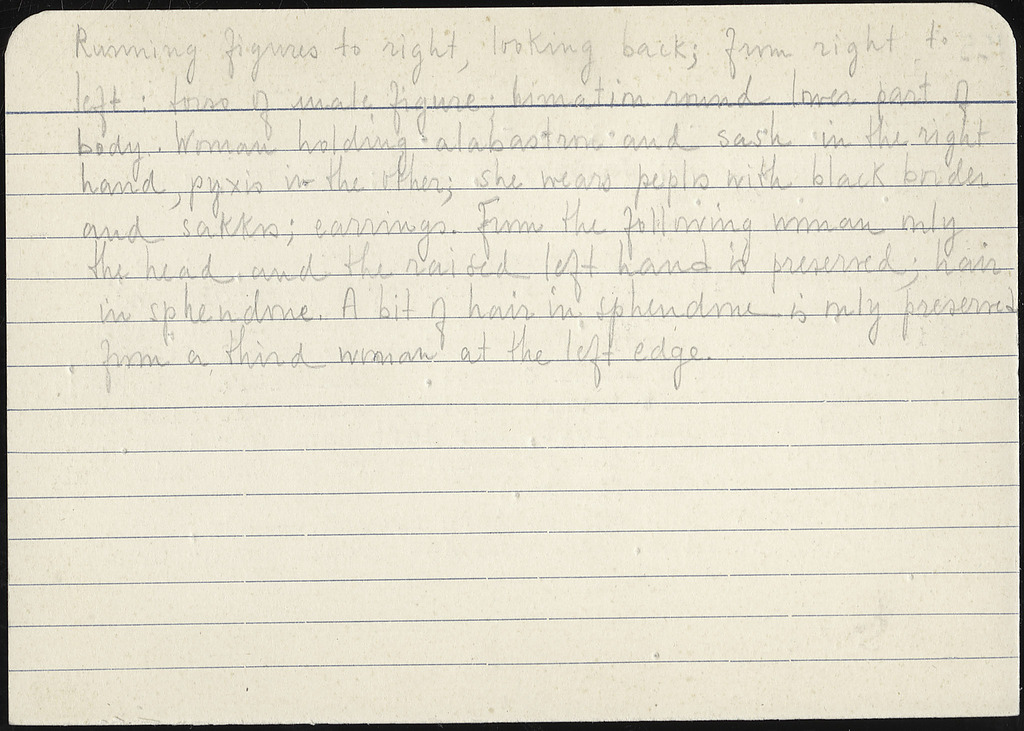 Running figures to right, looking back; from right to
left: torso of male figure; himation round lower part of
body. Woman holding alabastron and sash in the right
hand, pyxis in the other; she wears peplos with black border
and sakkos; earrings. From the following woman only
the head and the raised left hand is preserved; hair
in sphendone. A bit of hair in sphendone is only preserved
from a third woman at the left edge.